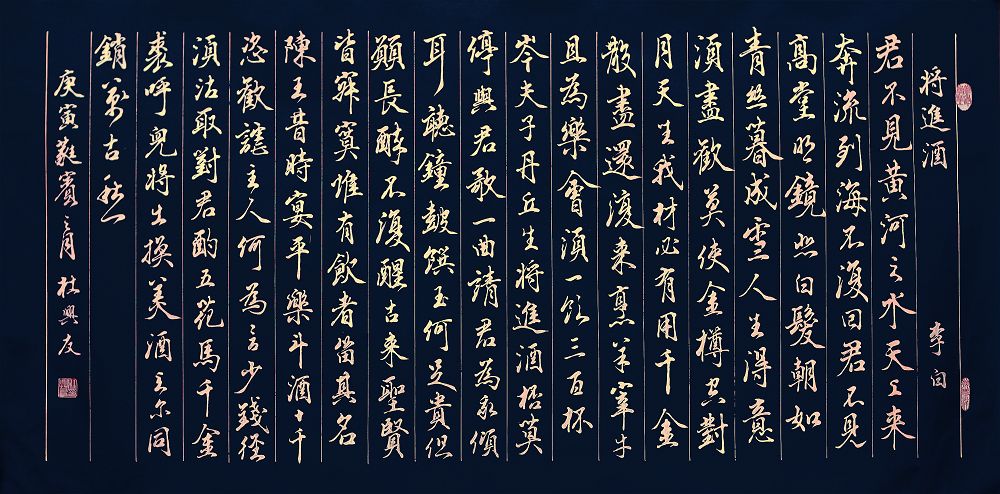 将進酒 李白
君不見黃河之水天上來
奔流列海不復回君不見
高堂明鏡悲白髮朝如
青絲暮成雪人生得意
須盡歡莫使金樽空對
月天生我材必有用千金
散盡還復來烹羊宰牛
且為樂會須一飲三百杯
岑夫子丹丘生將進酒杯莫
停與君歌一曲請君為我傾
耳聽鐘鼓饌玉何足貴但
願長醉不復醒古來聖賢
皆寂寞惟有飲者留其名
陳王昔時宴平樂斗酒十千
恣歡謔主人何為言少錢徑
須沽取對君酌五花馬千金
裘呼兒將出換美酒與爾同
銷萬古愁
庚寅蕤賓之月杜興友